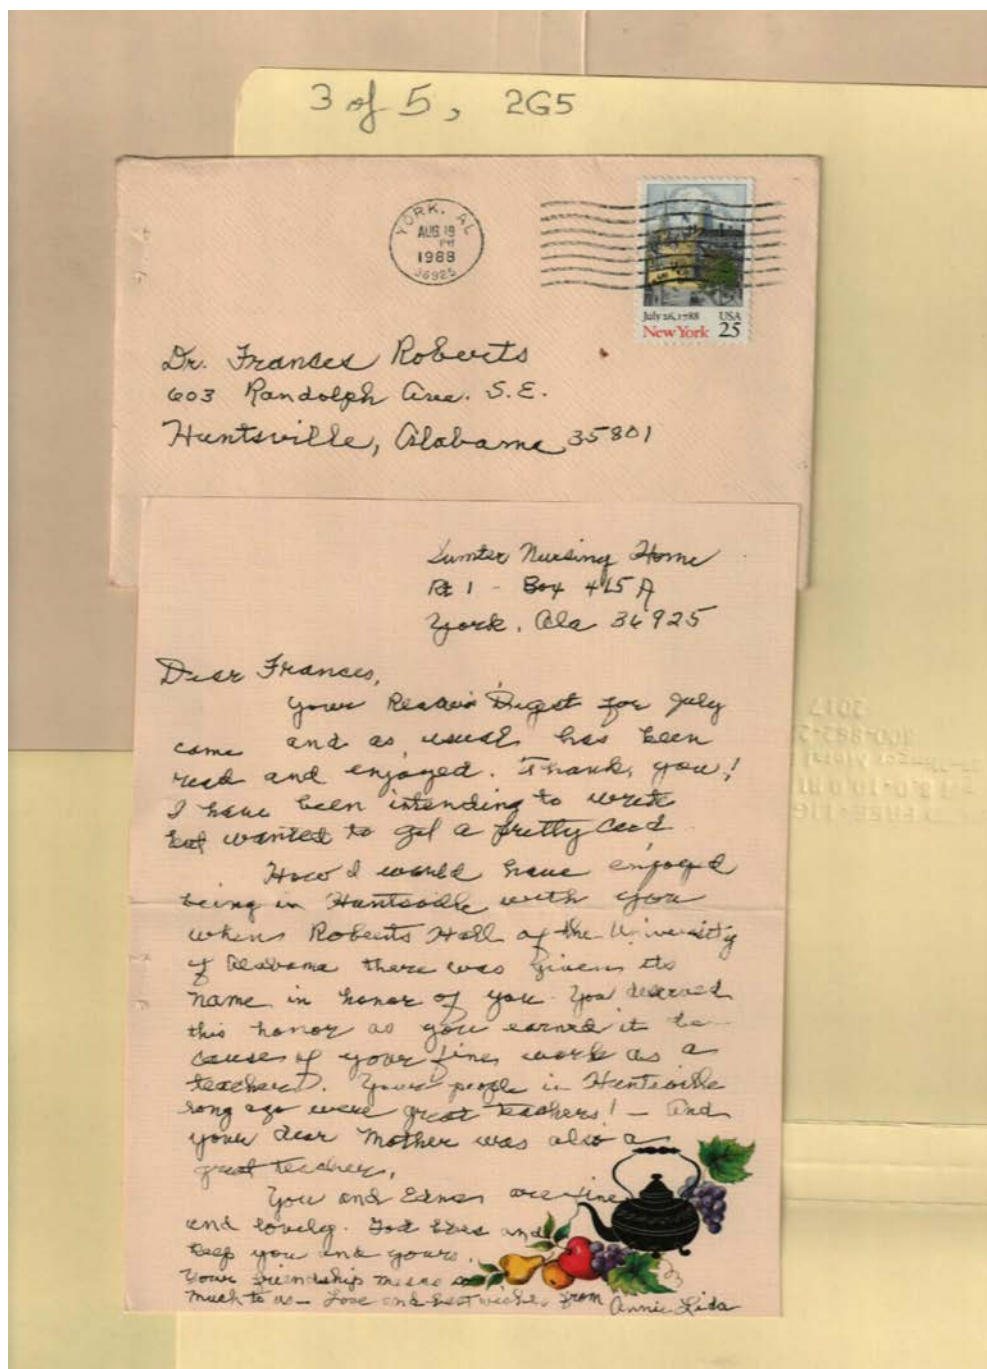 3 of 5, 2G5
YORK, AL
AUG 19
PM
1988
36925
July 26, 1788 USA
New York 25
Dr. Frances Roberts
603 Randolph Ave. S.E.
Huntsville, Alabama 35801
Sumter Nursing Home
Rt 1 - Box 415 A
York, Ala 36925
Dear Frances,
Your Reader's Digest for July
came and as usual has been
read and enjoyed. Thank you!
I have been intending to write
but wanted to get a pretty card.
How I would have enjoyed
being in Huntsville with you
when Roberts Hall of the University
of Alabama there was given its
name in honor of you. You deserved
this honor as you earned it be-
cause of your fine work as a
teacher. Your people in Huntsville
long ago were great teachers! - And
your dear Mother was also a
great teacher.
You and Edna are fine
and lovely. God bless and
keep you and yours.
Your friendship means so
much to us - Love and best wishes from Annie Lida
2017